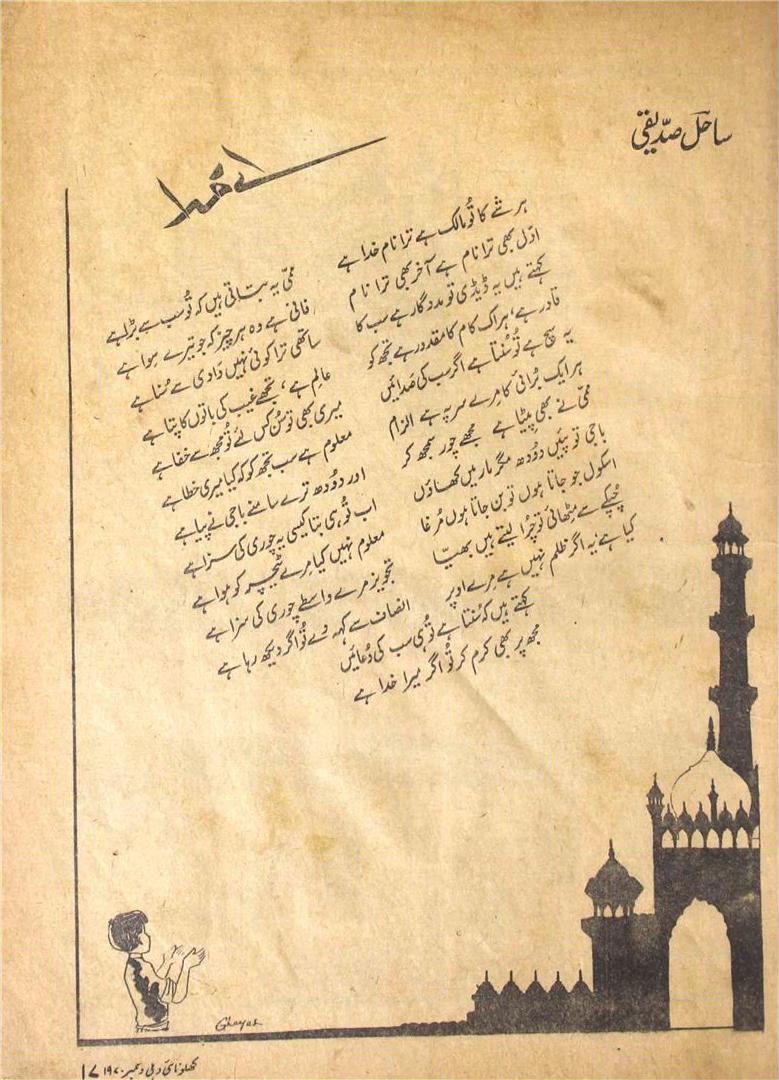 ساحل صدّیقی
اے خُدا
ہر شے کا تُو مالک ہے ترا نام خدا ہے
ممّی یہ بتاتی ہیں کہ تُو سب سے بڑا ہے
اوّل بھی ترا نام ہے آخر بھی ترا نام
فانی ہے وہ ہر چیز کہ جو تیرے سِوا ہے
کہتے ہیں یہ ڈیڈی تو مددگار ہے سب کا
ساتھی ترا کوئی نہیں دادی سے سُنا ہے
قادر ہے، ہر اک کام کا مقدور ہے تجھ کو
عالِم ہے، تجھے غیب کی باتوں کا پتا ہے
یہ سچ ہے تُو سُنتا ہے اگر سب کی صَدائیں
میری بھی تو سُن کس لئے تُو مجھ سے خفا ہے
ہر ایک بُرائی کا مِرے سر پہ ہے الزام
معلوم ہے سب تجھ کو کہ کیا میری خطا ہے
ممّی نے بھی پیٹا ہے مجھے چور سمجھ کر
اور دُودھ ترے سامنے باجی نے پیا ہے
باجی تو پئیں دُودھ مگر مار میں کھاؤں
اب تُو ہی بتا کیسی یہ چوری کی سزا ہے
اسکول جو جاتا ہوں تو بن جاتا ہوں مُرغا
معلوم نہیں کیا مِرے ٹیچر کو ہوا ہے
چُپکے سے مِٹھائی تو چُرا لیتے ہیں بھیّا
تجویز مرے واسطے چوری کی سزا ہے
کیا ہے یہ اگر ظلم نہیں ہے مِرے اوپر
انصاف سے کہہ دے تُو اگر دیکھ رہا ہے
کہتے ہیں کہ سُنتا ہے تُو ہی سب کی دُعائیں
مجھ پر بھی کرم کر تُو اگر میرا خدا ہے
Ghayas
کھلونا نئی دہلی دسمبر ۱۹۷۰ ۱۷